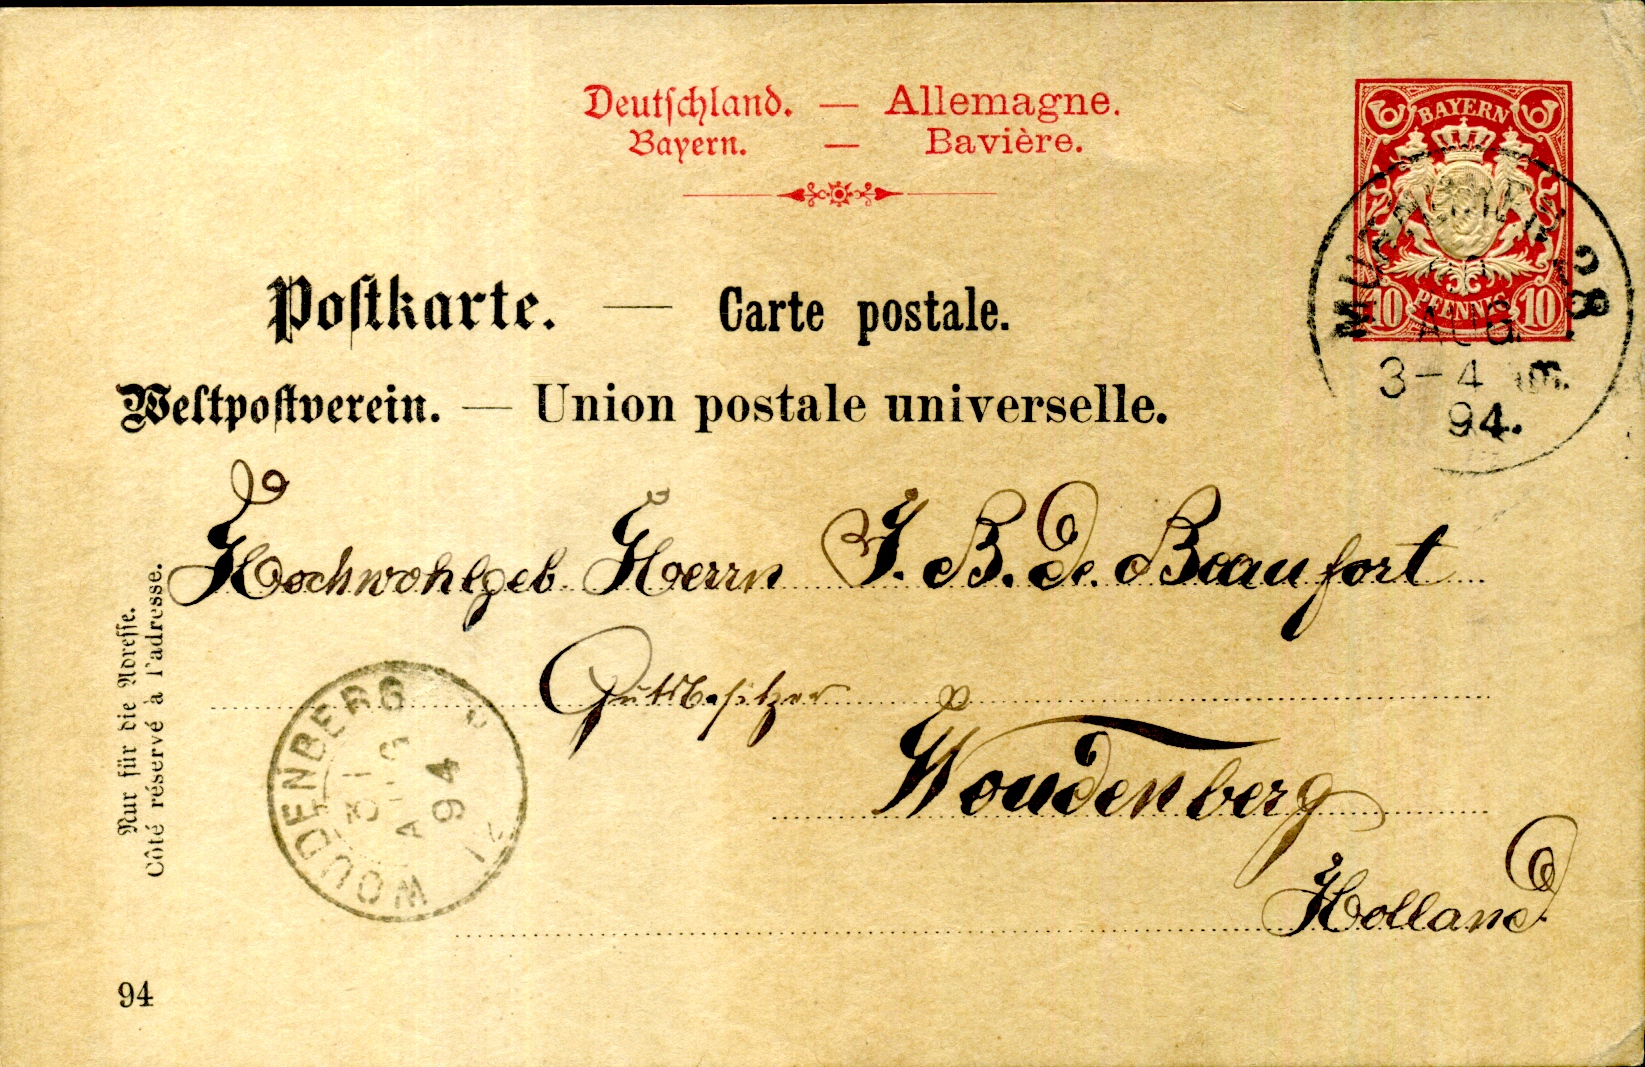 Deutschland. — Allemagne.
Bayern. — Bavière.
BAYERN
10 PFENNIG 10
28
AUG
3-4
94.
Postkarte. — Carte postale.
Weltpostverein. — Union postale universelle.
Hochwohlgeb. Herrn J. B. de Beaufort
Gutsbesitzer
Woudenberg
Holland
Nur für die Adresse.
Côté réservé à l'adresse.
WOUDENBERG
AUG
94
94